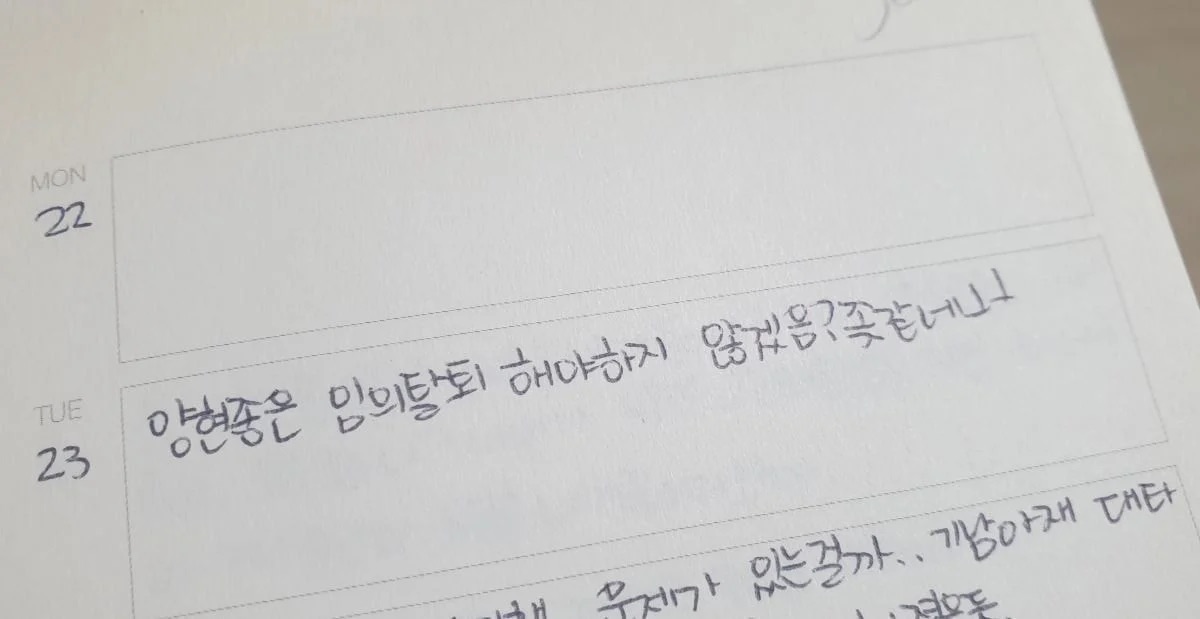 MON
22
TUE
23
양현종은 임의탈퇴 해야하지 않겠음? 좆같네ㅗㅗ
문제가 있는걸까.. 기남아재 대타